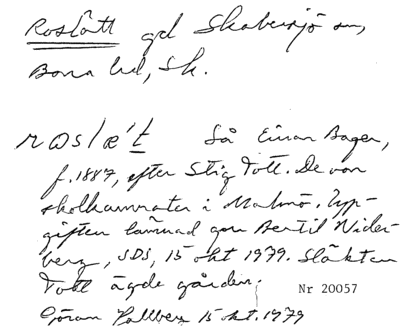 Roslätt gd Skabersjö sn,
Bara hd, Sk.
rωslæ't Så Einar Bager,
f. 1887, efter Stig Tott. De var
skolkamrater i Malmö. Upp-
giften lämnad gm Bertil Wider-
berg, SDS, 15 okt 1979. Släkten
Tott ägde gården.
Nr 20057
Göran Hallberg 15 okt. 1979